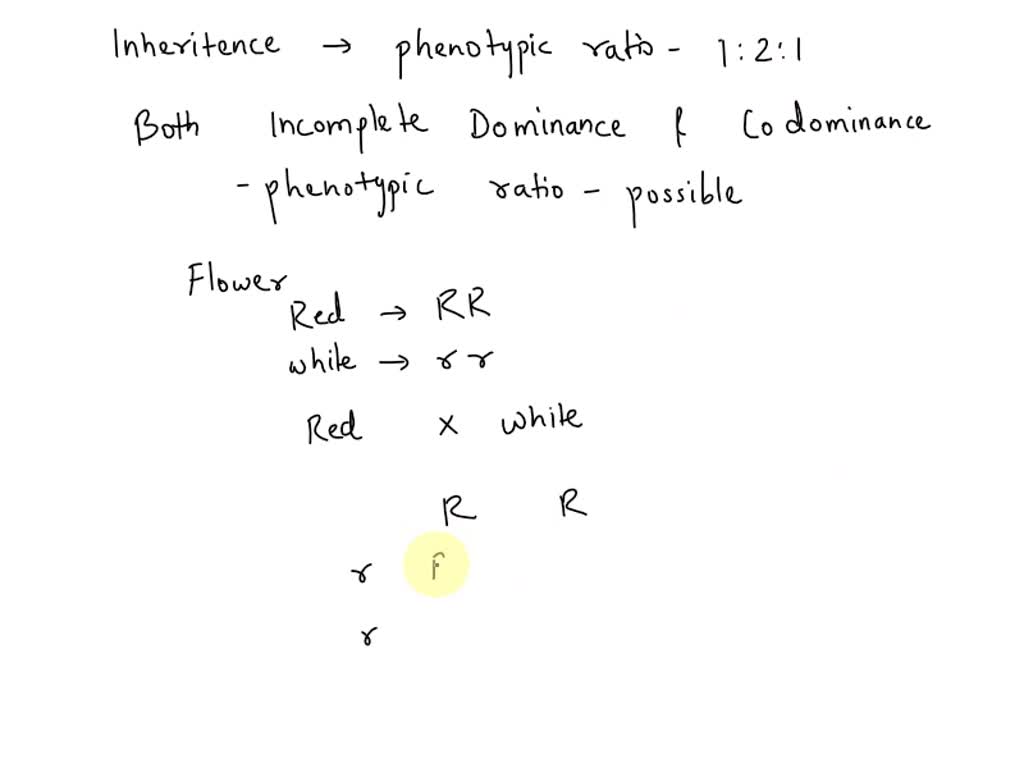 Inheritence → phenotypic ratio - 1:2:1
Both Incomplete Dominance & Codominance
- phenotypic ratio - possible
Flower
Red → RR
white → rr
Red x white
R R
r
r